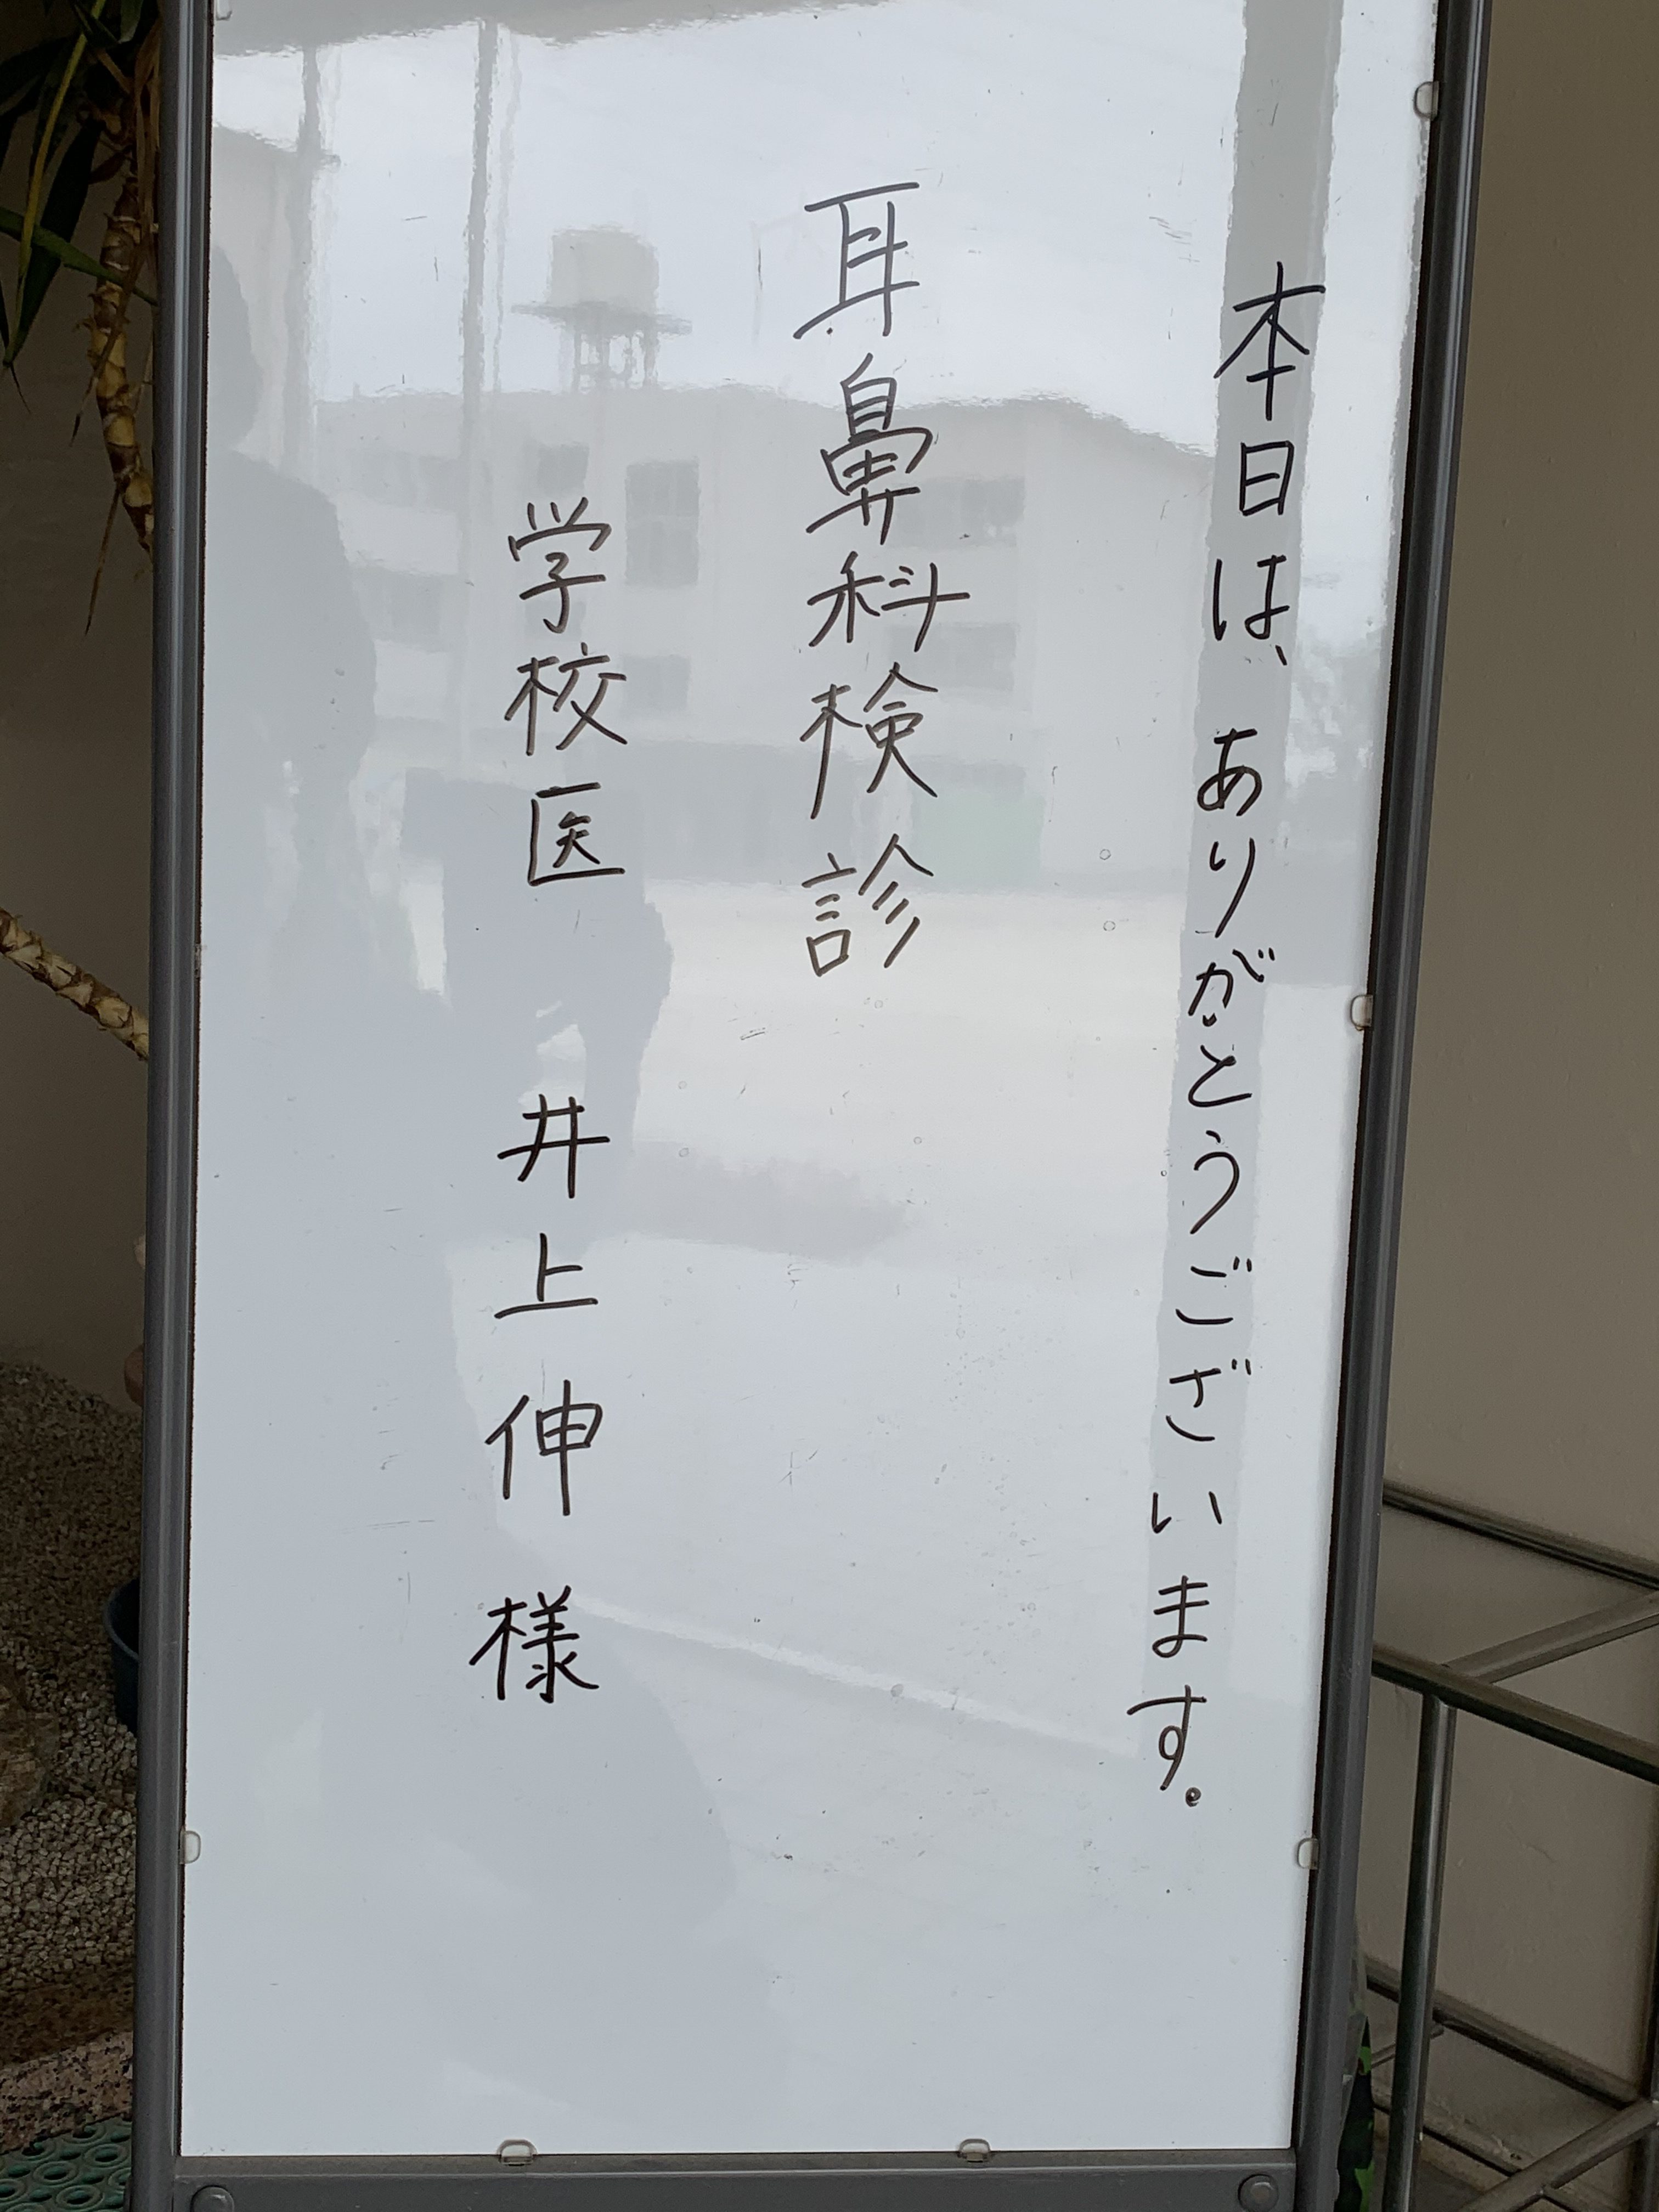 本日は、ありがとうございます。
耳鼻科検診
学校医 井上伸様